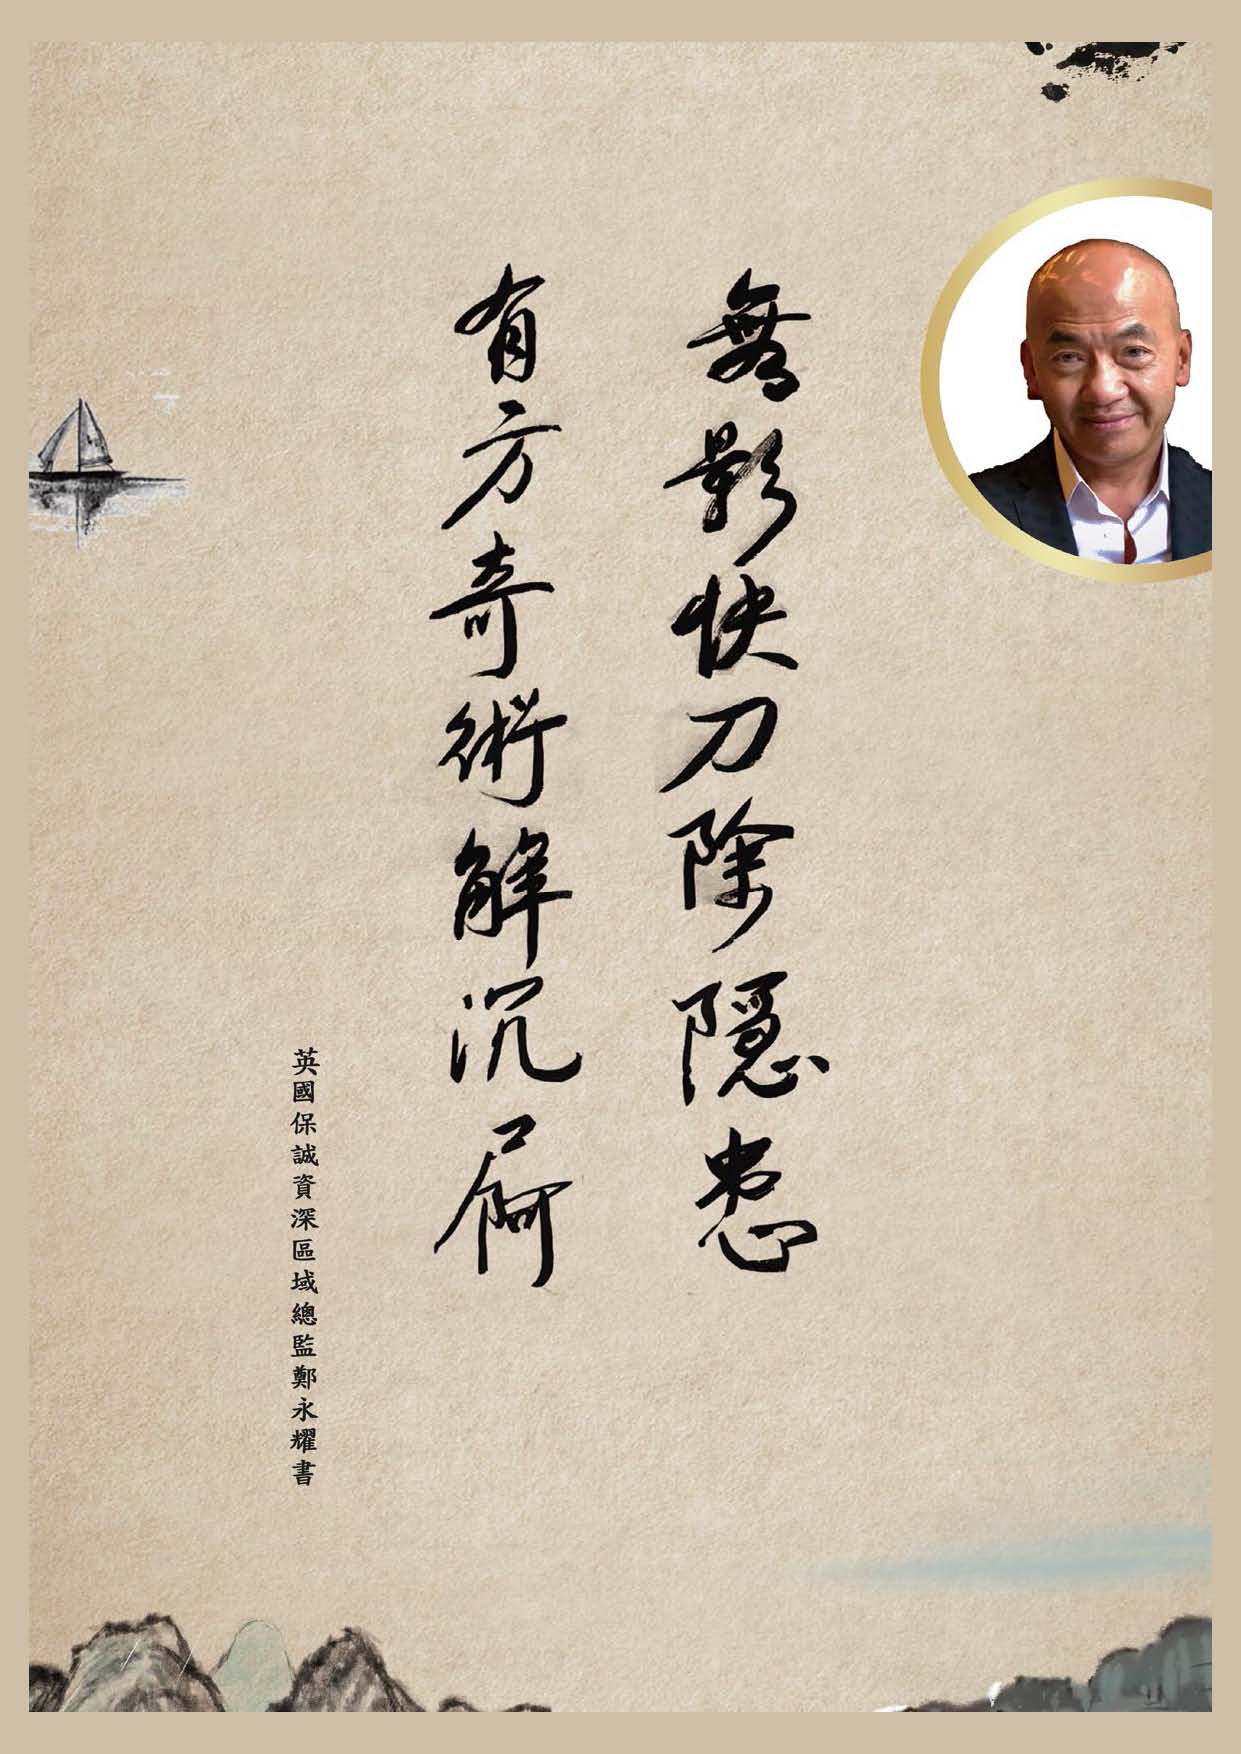 無影快刀除隱患
有方奇術解沉屙
英國保誠資深區域總監鄭永耀書